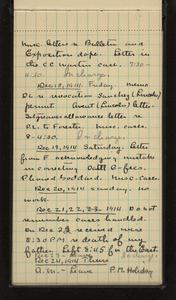 Misc letters & Bulletin and
Exposition dope. Letter in
the C C Martin case. 7:30-
4:30. In charge.
Dec 18, 1914 Friday. memo
DL & revocation Sanchez (Lincoln)
permit. Grant (Lincoln) letter.
grievance allowance letter
P.L. to Forester. Misc. cases.
8-4:30. In charge.
Dec 19, 1914 Saturday. Letter
from F. acknowledging mistake
in correcting Datil
Goddard. Misc. cases.
Dec 20, 1914 Sunday. no
work.
Dec 21, 22, 23 1914 Do not
remember cases handled.
On Dec 23 received word
8:30 P.M. of death of my
father. Left 8:45 for the East.
Dec 24, 1914 Thurs
A.M. - Leave P.M. Holiday